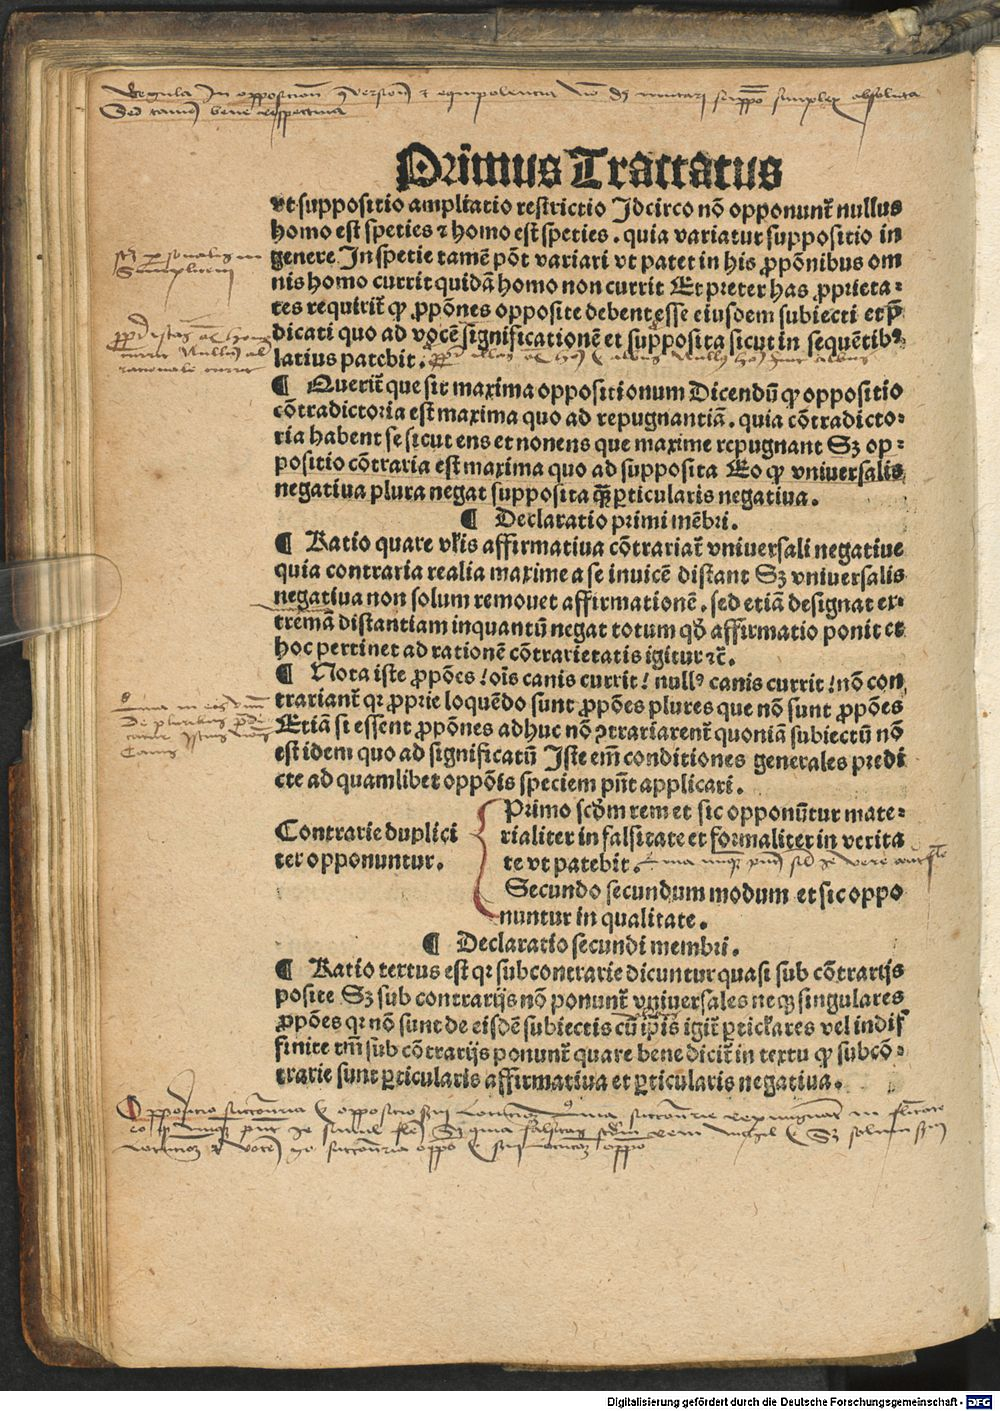 Regula In opposicione conversione et equipolencia non debet mutari suppositio simplex absoluta
Sed tamen bene respectiva
Primus Tractatus
vt suppositio ampliatio restrictio Jdcirco nō opponunt᷑ nullus
homo est speties ⁊ homo est speties . quia variatur suppositio in
genere Jn spetie tamē pōt variari vt patet in his ꝓpōnibus om
nis homo currit quidā homo non currit Et preter has ꝓprieta⸗
tes requirit᷑ ꝙ ꝓpōnes opposite debent esse eiusdem subiecti et p̄
dicati quo ad vocē significationē et supposita sicut in sequētibꝰ
latius patebit .
¶ Querit᷑ que sit maxima oppositionum Dicendū ꝙ oppositio
cōtradictoria est maxima quo ad repugnantiā . quia cōtradicto⸗
ria habent se sicut ens et nonens que maxime repugnant Sꝫ op⸗
positio cōtraria est maxima quo ad supposita Eo ꝙ vniuersalis
negatiua plura negat supposita qꝫ̄ ꝑticularis negatiua .
¶ Declaratio primi mēbri .
¶ Ratio quare vl̄is affirmatiua cōtrariat᷑ vniuersali negatiue
quia contraria realia maxime a se inuicē distant Sꝫ vniuersalis
negatiua non solum remouet affirmationē . sed etiā designat ex⸗
tremā distantiam inquantū negat totum qd̛ affirmatio ponit et
hoc pertinet ad rationē cōtrarietatis igitur ⁊c̄ .
¶ Nota iste ꝓpōes / oīs canis currit / nullꝰ canis currit / nō con
trariant᷑ qꝛ ꝓprie loquēdo sunt ꝓpōes plures que nō sunt ꝓpōes
Etiā si essent ꝓpōnes adhuc nō ꝯtrariarent᷑ quoniā subiectū nō
est idem quo ad significatū Jste em̄ conditiones generales predi
cte ad quamlibet oppōis speciem pn̄t applicari .
Contrarie duplici
ter opponuntur .
Primo scd̛m rem et sic opponūtur mate⸗
rialiter in falsitate et formaliter in verita
te vt patebit .
Secundo secundum modum et sic oppo
nuntur in qualitate .
¶ Declaratio secundi membri .
¶ Ratio textus est qꝛ subcontrarie dicuntur quasi sub cōtrarijs
posite Sꝫ sub contrarijs nō ponunt᷑ vniuersales neqꝫ singulares
ꝓpōes qꝛ nō sunt de eisdē subiectis cū ip̄is igit᷑ ꝑtic̄lares vel indif
finite tm̄ sub cōtrarijs ponunt᷑ quare bene dicit᷑ in textu ꝙ subcō⸗
trarie sunt ꝑticularis affirmatiua et ꝑticularis negatiua .
Digitalisierung gefördert durch die Deutsche Forschungsgemeinschaft - DFG